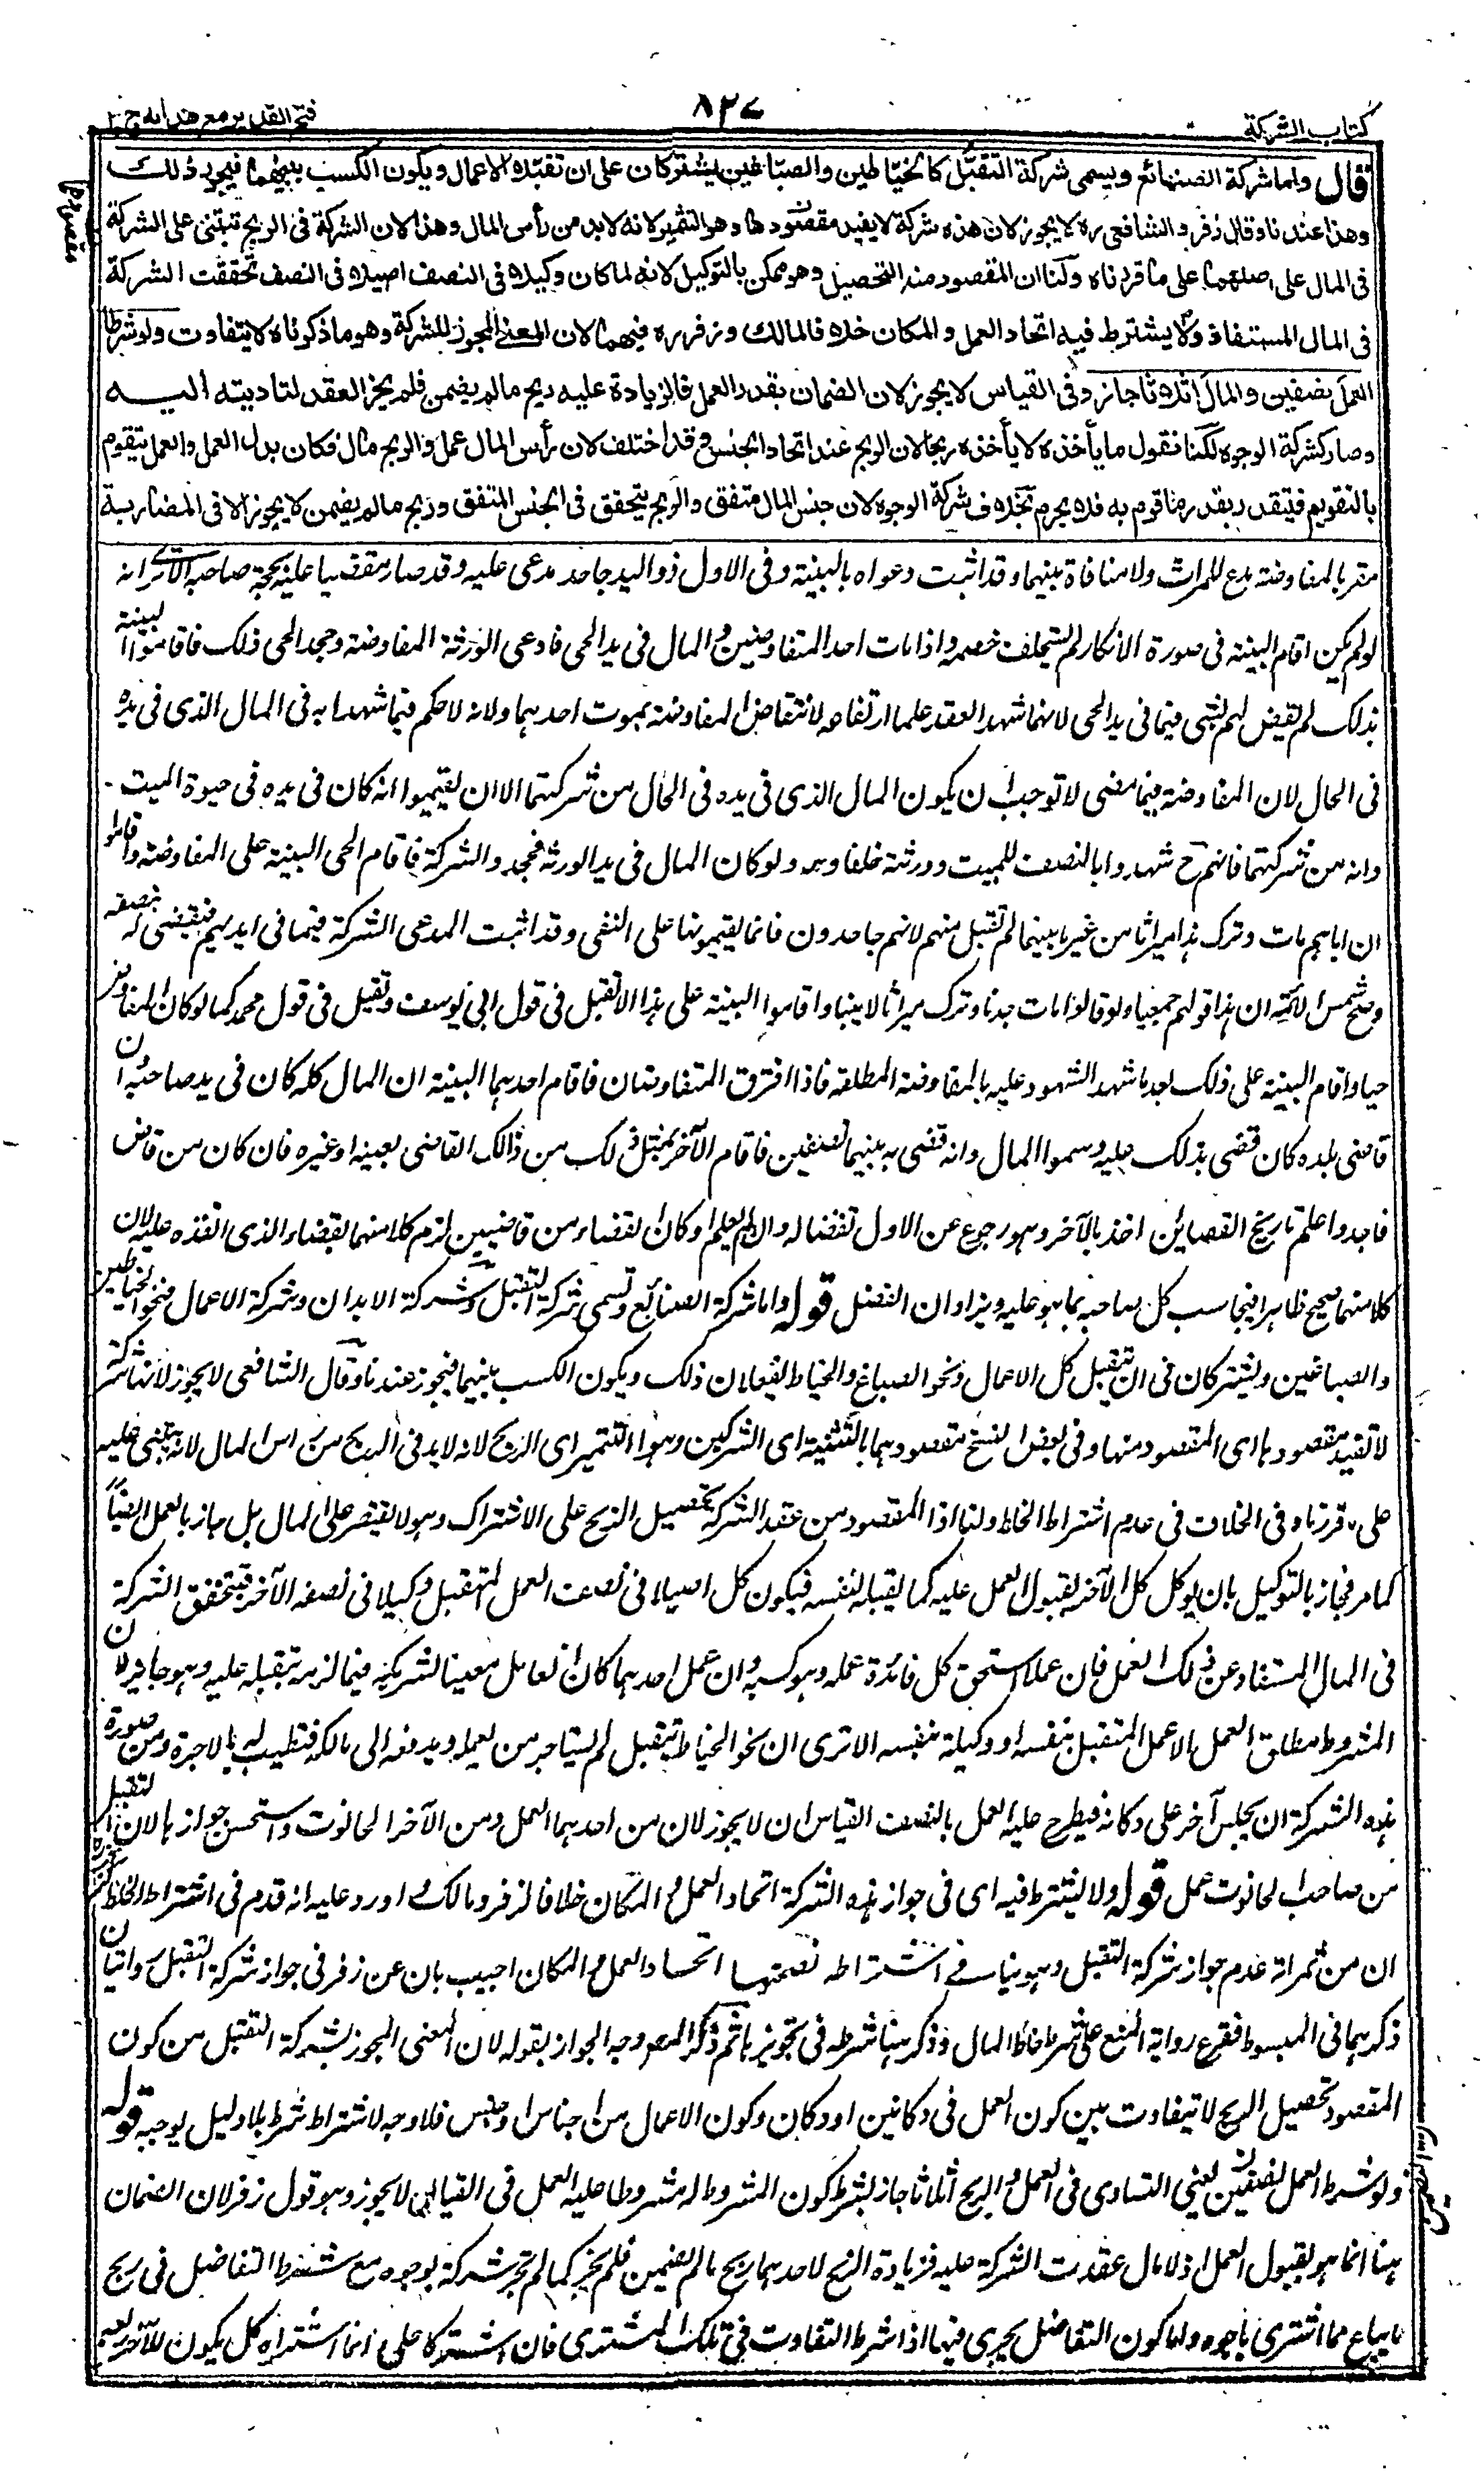 كتاب الشركة
٨٢٧
فتح القدير مع هدايه ج ٢
قال واما شركة الصنائع ويسمى شركة التقبل كالخياطين والصباغين يشتركان على ان تقبلا الاعمال ويكون الكسب بينهما فيجوز ذلك
وهذا عندنا وقال زفر والشافعي ره لا يجوز لان هذه شركة لا يفيد مقصودها وهو التثمير لانه لا بد من رأس المال وهذا لان الشركة فى الربح تبتنى على الشركة
فى المال على اصلهما على ما قررناه ولنا ان المقصود منه التحصيل وهو ممكن بالتوكيل لانه لما كان وكيلا فى النصف اصيلا فى النصف تحققت الشركة
فى المال المستفاد ولا يشترط فيه اتحاد العمل والمكان خلافا لمالك وزفر ره فيهما لان المعنى المجوز للشركة وهو ما ذكرناه لا يتفاوت ولو شرطا
العمل نصفين والمال اثلاثا جاز وفى القياس لا يجوز لان الضمان بقدر العمل فالزيادة عليه ربح مالم يضمن فلم يجز العقد لتاديته اليه
وصار كشركة الوجوه لكنا نقول ما يأخذه لا يأخذه ربحا لان الربح عند اتحاد الجنس وقد اختلف لان رأس المال عمل والربح مال فكان بدل العمل والعمل يتقوم
بالتقويم فيتقدر بقدر ما قوم به فلا يحرم بخلاف شركة الوجوه لان جنس المال متفق والربح يتحقق فى الجنس المتفق وربح مالم يضمن لا يجوز الا فى المضاربة
مقر بالمفاوضة مدع للمراث ولا منافاة بينهما وقد اثبت دعواه بالبينة وفى الاول ذو اليد جاحد مدعى عليه وقد صار مقضيا عليه بحجة صاحبه الاترى انه
لو لم يكن اقام البينة فى صورة الانكار لم يستحلف خصمه واذا مات احد المتفاوضين والمال فى يد الحى فادعى الورثة المفاوضة وجحد الحى ذلك فاقاموا البينة
بذلك لم يقض لهم بشئ فيما فى يد الحى لانهما شهدا بعقد علما ارتفاعه لانتقاض المفاوضة بموت احدهما ولانه لا حكم فيما شهدا به فى المال الذى فى يده
فى الحال لان المفاوضة فيما مضى لا توجب ان يكون المال الذى فى يده فى الحال من شركتهما الا ان يقيموا انه كان فى يده فى حيوة الميت
وانه من شركتهما فانهم ح شهدوا بالنصف للميت وورثته خلفاؤه ولو كان المال فى يد الورثة فجحدوا الشركة فاقام الحى البينة على المفاوضة واقاموا
ان اباهم مات وترك هذا ميراثا من غير ما بينهما لم تقبل منهم لانهم جاحدون فانما يقيمونها على النفى وقد اثبت المدعى الشركة فيما فى ايديهم فيقضى له بنصفه
وصحح شمس الائمة ان هذا قولهم جميعا ولو قالوا مات جدنا وترك ميراثا لابينا واقاموا البينة على هذا لا تقبل فى قول ابى يوسف وتقبل فى قول محمد كما لو كان المفاوض
حيا واقام البينة على ذلك بعد ما شهد الشهود عليه بالمفاوضة المطلقة فاذا افترق المتفاوضان فاقام احدهما البينة ان المال كله كان فى يد صاحبه وان
قاضى بلده كان قضى بذلك عليه وسموا المال وانه قضى به بينهما نصفين فاقام الآخر بمثل ذلك من ذالك القاضى بعينه او غيره فان كان من قاض
واحد وعلم تاريخ القضائين اخذ بالآخر وهو رجوع عن الاول وان لم يعلم او كان القضاء من قاضيين لزم كلا منهما القضاء الذى انفذه عليه لان
كلا منهما صحيح ظاهرا فيحاسب كل صاحبه بما هو عليه ويترادان الفضل قوله واما شركة الصنائع وتسمى شركة التقبل وشركة الابدان وشركة الاعمال فنحو الخياطين
والصباغين يشتركان فى ان يتقبل كل الاعمال ونحو الصباغ والخياط يفعلان ذلك ويكون الكسب بينهما فيجوز عندنا وقال الشافعي لا يجوز لانها شركة
لا تفيد مقصودها اى المقصود منها وفى بعض النسخ مقصودهما بالتثنية اى الشريكين وهو التثمير اى الربح لانه لا بد فى الربح من راس المال لانه يبتنى عليه
على ما قررناه فى الخلاف فى عدم اشتراط الخلط ولنا ان المقصود من عقد الشركة تحصيل الربح على الاشتراك وهو لا يقتصر على المال بل جاز بالعمل ايضا
كما مر فجاز بالتوكيل بان يوكل كل الآخر بقبول العمل عليه كما يقبله لنفسه فيكون كل اصيلا فى نصف العمل المتقبل وكيلا فى نصفه الآخر فيتحقق الشركة
فى المال المستفاد عن ذلك العمل فان عملا استحق كل فائدة عمله وهو كسبه وان عمل احدهما كان العامل معينا لشريكه فيما لزمه بتقبله عليه وهو جائز لان
المشروط مطلق العمل لا عمل المتقبل بنفسه او وكيله بنفسه الا ترى ان نحو الخياط يتقبل ثم يستاجر من يعمل ويدفعه الى مالكه فتطيب له الاجرة ومن صورة
هذه الشركة ان يجلس آخر على دكانه فيطرح عليه العمل بالنصف القياس ان لا يجوز لان من احدهما العمل ومن الآخر الحانوت واستحسن جوازها لان التقبل
من صاحب الحانوت عمل قوله ولا يشترط فيه اى فى جواز هذه الشركة اتحاد العمل والمكان خلافا لزفر ومالك واورد عليه انه قدم فى اشتراط الخلط
ان من ثمراته عدم جواز شركة التقبل وهو ينافى اشتراط لصحتها اتحاد العمل والمكان اجيب بان عن زفر فى جواز شركة التقبل روايتان
ذكرهما فى المبسوط ففرع رواية المنع على شرط خلط المال وذكر هنا شرطه فى تجويزها ثم ذكر المصر وجه الجواز بقوله لان المعنى المجوز لشركة التقبل من كون
المقصود تحصيل الربح لا يتفاوت بين كون العمل فى دكانين او دكان وكون الاعمال من اجناس او جنس فلا وجه لاشتراط شرط بلا دليل يوجبه قوله
ولو شرط العمل نصفين يعنى التساوى فى العمل والربح اثلاثا جاز بشرط كون المشروط له مشروطا عليه العمل فى القياس لا يجوز وهو قول زفر لان الضمان
هنا انما هو بقبول العمل اذ لا مال عقدت الشركة عليه فزيادة الربح لاحدهما ربح ما لم يضمن فلم يجز كما لم تجز شركة الوجوه مع شرط التفاضل فى ربح
ما يباع مما اشترى بالوجوه وانما كون التفاضل يجرى فيها اذا شرط التفاوت فى تلك المشترى فان اشتركا على ان ما اشتراه كل يكون للآخر